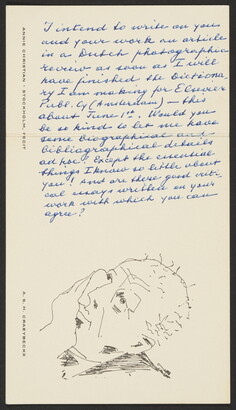 I intend to write on you
and your work an article
in a Dutch photographic
review as soon as I will
have finished the Dictiona-
ry I am making for Elsevier
Publ. Cy (Amsterdam) — this
about June 1st. Would you
be so kind to let me have
some biographical and
bibliographical details
ad hoc? Except the essential
things I know so little about
you! And are there good criti-
cal essays written on your
work with which you can
agree?
ANNIE CHRISTIAN, STOCKHOLM, 1957
A. S. H. CRAEYBECKX